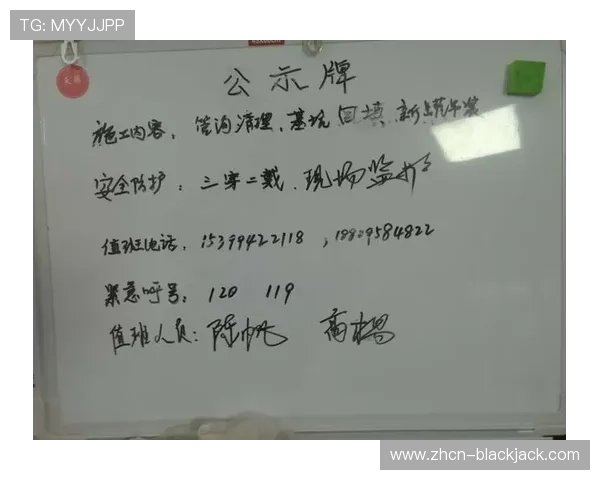 TG: MYYJJPP
公示牌
施工内容：管沟清理、基坑回填 新
安全防护：三穿二戴、现场监护
值班电话：15399422118，18809584822
紧急呼号：120 119
值班人员：陈帆 高
www.zhcn-blackjack.com